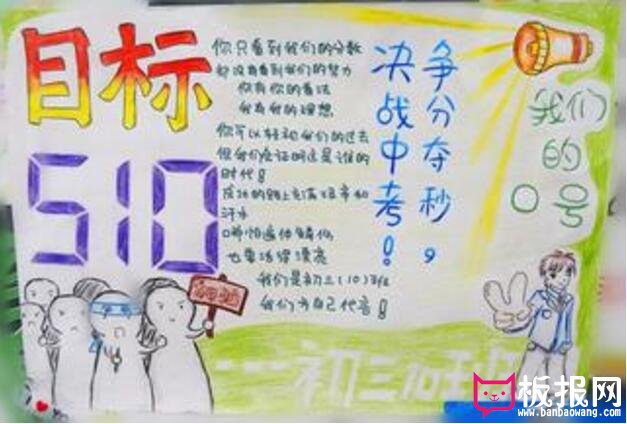 目标
510
你只看到我们的分数
却没有看到我们的努力
你有你的看法
我有我的理想
你可以轻视我们的过去
但我们应证明这是谁的
时代!
成功的路上充满艰辛和
汗水
哪怕遍体鳞伤
也要活得漂亮
我们是初三(10)班
我们为自己代言!
争分夺秒,
决战中考!
我们
的
口号
初三10班
板报网
www.banbaowang.com